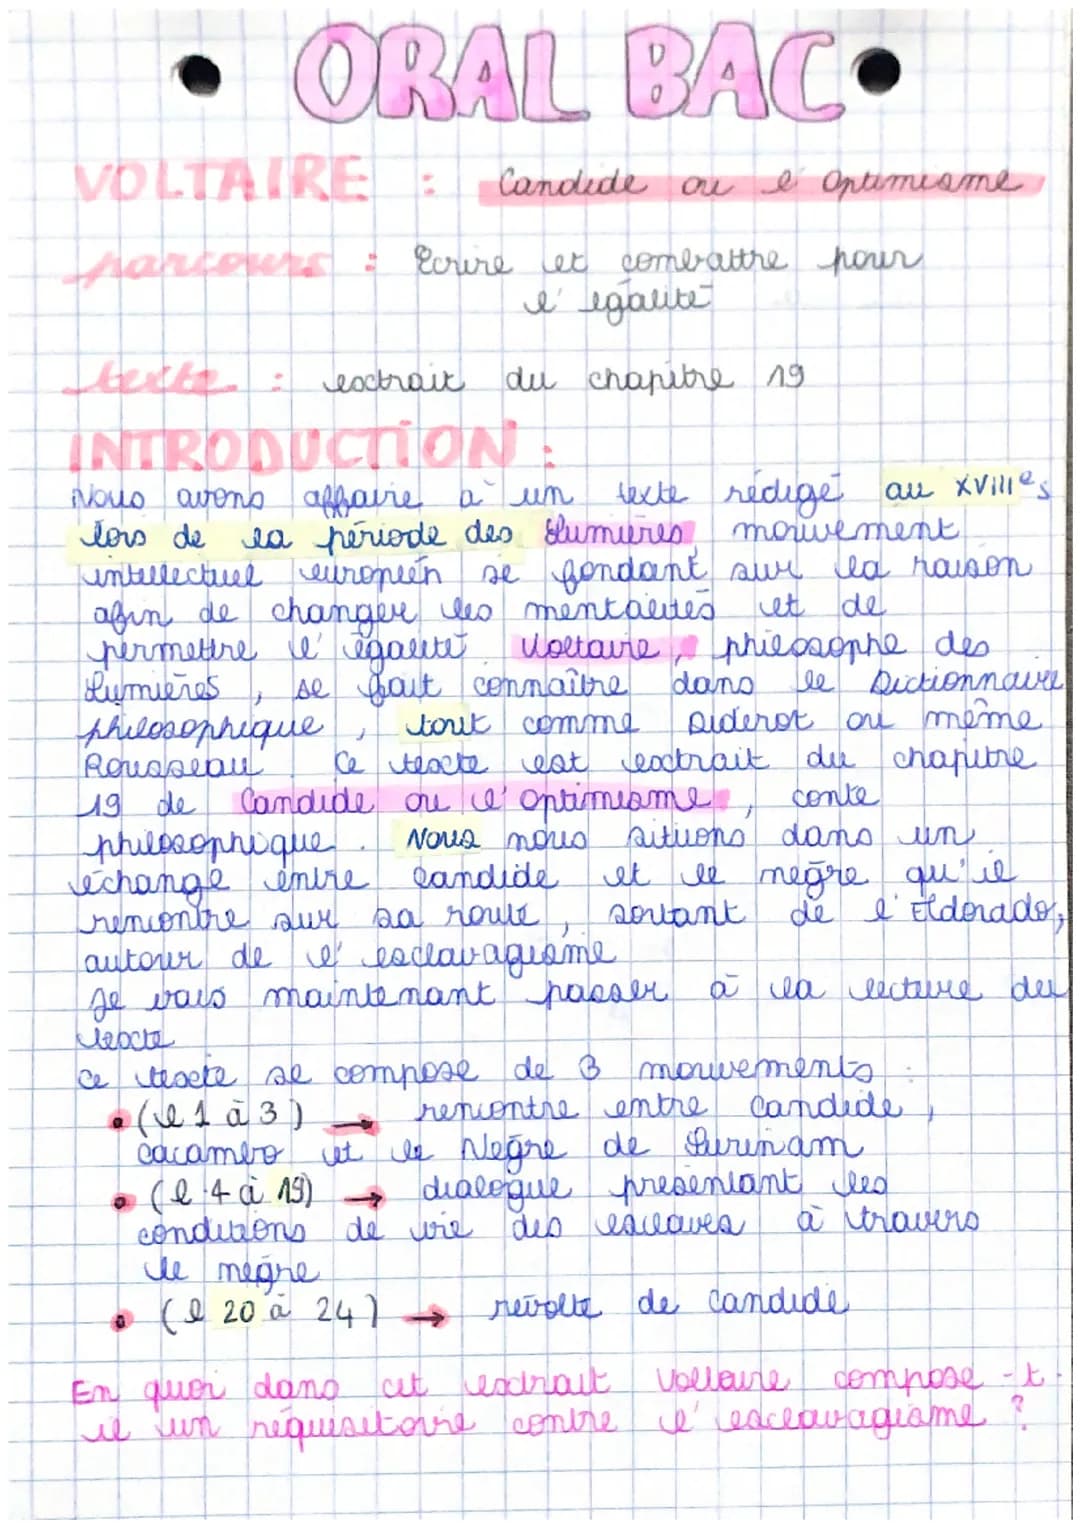 • ORAL BAC •
VOLTAIRE : Candide ou l'Optimisme
parcours : Ecrire et combattre pour
l'égalité
texte : extrait du chapitre 19
INTRODUCTION :
Nous avons affaire à un texte rédigé au XVIIIe s
lors de la période des Lumières mouvement
intellectuel européen se fondant sur la raison
afin de changer les mentalités et de
permettre l'égalité. Voltaire, philosophe des
Lumières, se fait connaître dans le Dictionnaire
philosophique, tout comme Diderot ou même
Rousseau. Ce texte est extrait du chapitre
19 de Candide ou l'optimisme, conte
philosophique. Nous nous situons dans un
échange entre Candide et le nègre qu'il
rencontre sur sa route, sortant de l'Eldorado,
autour de l'esclavagisme
Je vais maintenant passer à la lecture du
texte
Ce texte se compose de 3 mouvements :
• (l 1 à 3) → rencontre entre Candide,
Cacambo et le Nègre de Surinam
• (l 4 à 19) → dialogue présentant les
conditions de vie des esclaves à travers
le nègre
• (l 20 à 24) → révolte de Candide
En quoi dans cet extrait Voltaire compose-t-
il un réquisitoire contre l'esclavagisme ?